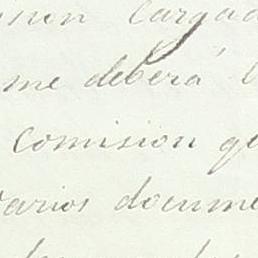 cargad
me deberá
comision qe
varios docume